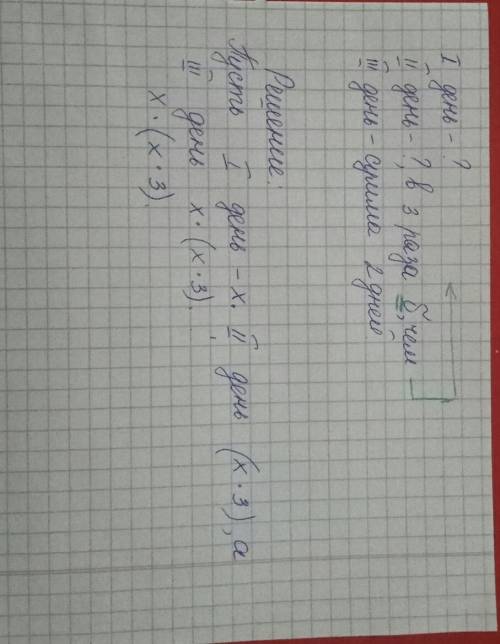 I день - ?
II день - ?, в 3 раза б, чем
III день - сумма 2 дней
Решение:
Пусть I день - x. II день (x · 3), а
III день x · (x · 3).
x · (x · 3).